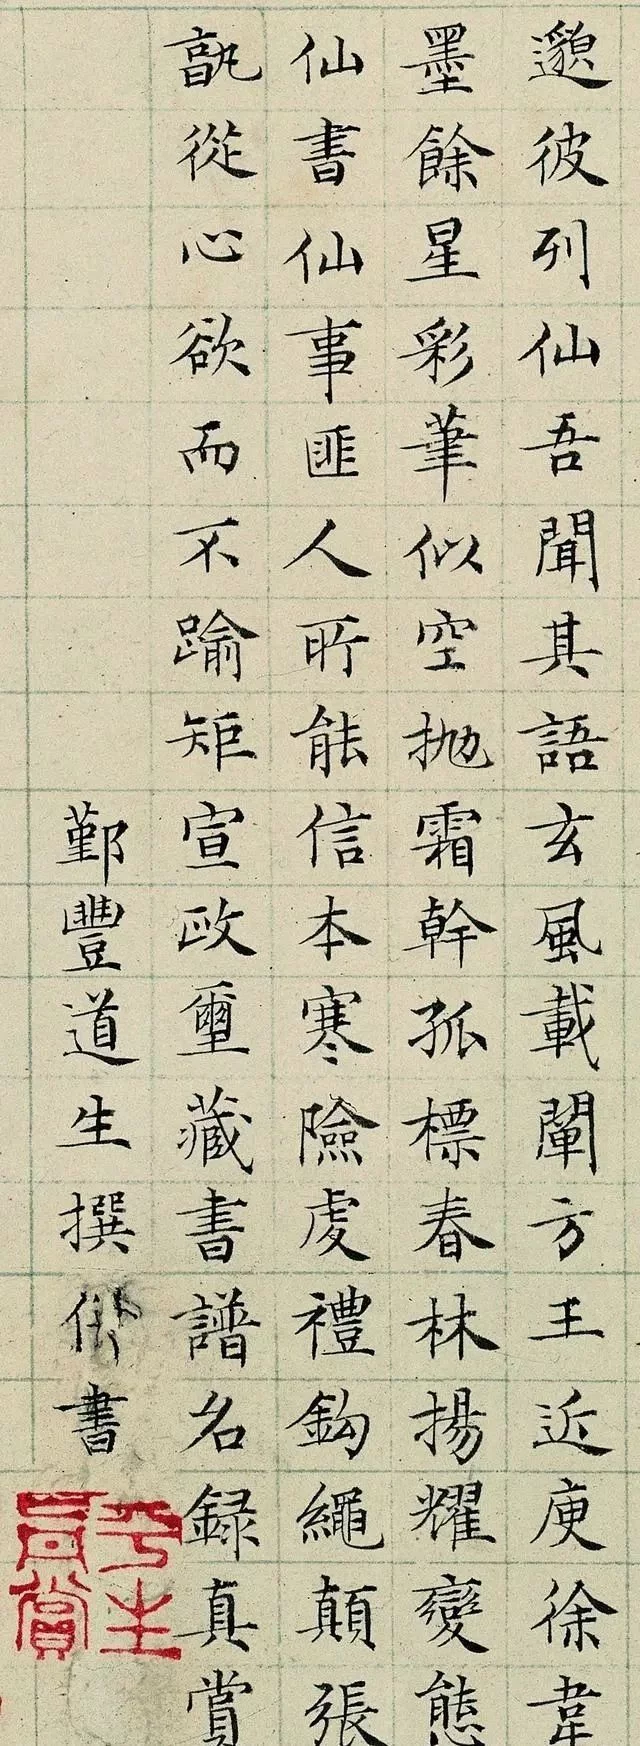 邈彼列仙吾聞其語玄風載闡方王近庾徐韋
墨餘星彩筆似空拋霜幹孤標春林揚耀變態
仙書仙事匪人所能信本寒險虔禮鈎繩顛張
孰從心欲而不踰矩宣政璽藏書譜名錄真賞
鄞豐道生撰併書
平生真賞